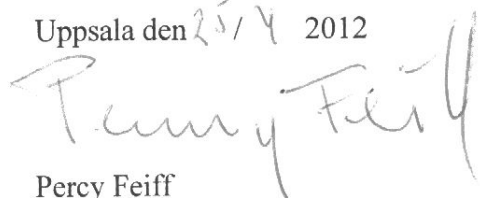 Uppsala den 25/4 2012
Percy Feiff
Percy Feiff